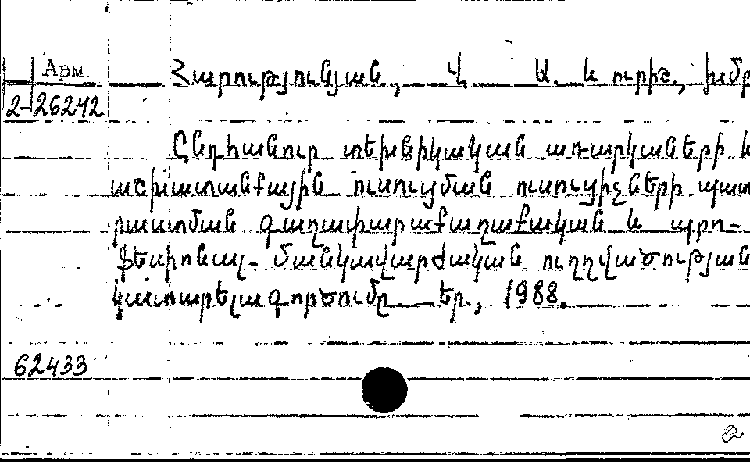 Арм
Հարությունյան, Վ. Ա. և ուրիշ., խմբ
2-26242
Ընդհանուր տեխնիկական առարկաների և
աշխատանքային ուսուցման ուսուցիչների պատ
րաստման գաղափարաքաղաքական և պրո-
ֆեսիոնալ-մանկավարժական ուղղվածության
կատարելագործումը Եր., 1988.
62433